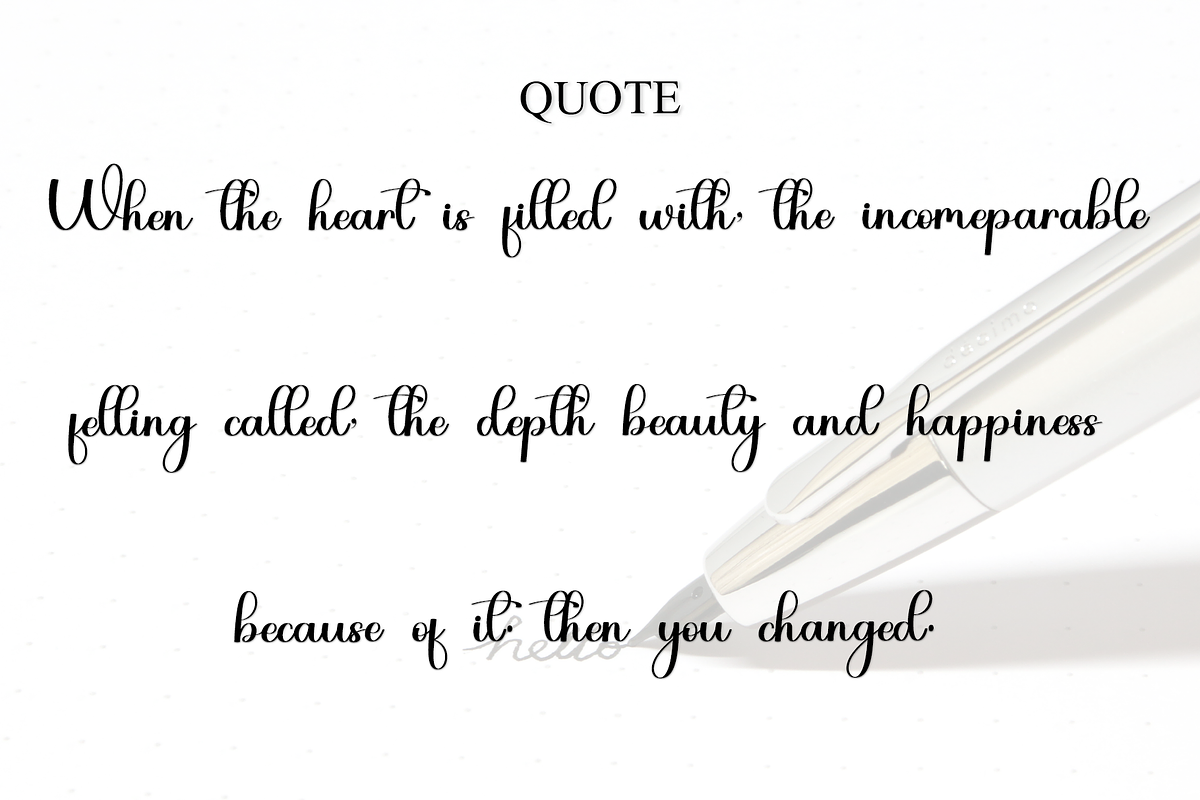 QUOTE
When the heart is filled with, the incomeparable
felling called, the depth beauty and happiness
because of it. then you changed.
hello
dosimo